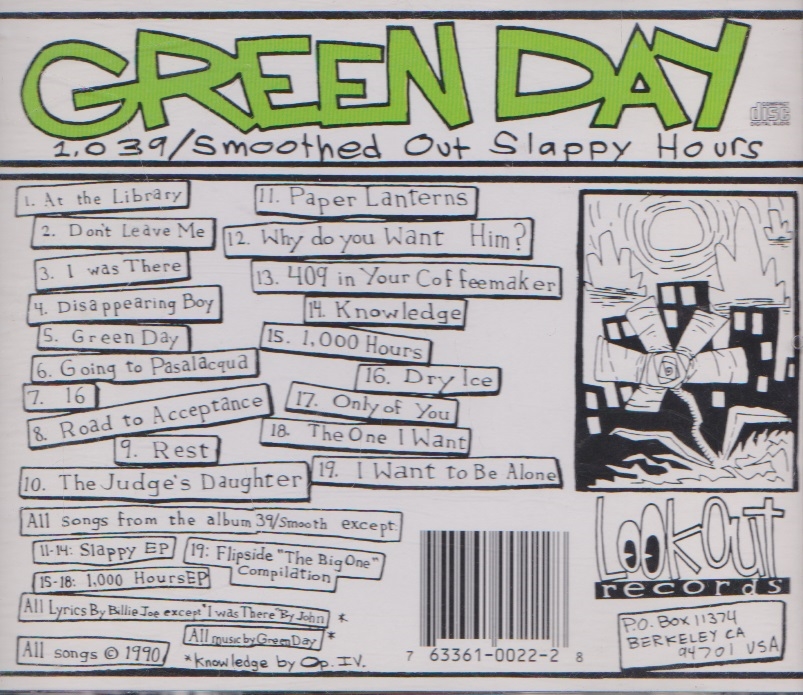 GREEN DAY
COMPACT
disc
DIGITAL AUDIO
1,039/Smoothed Out Slappy Hours
1. At the Library
2. Don't Leave Me
3. I was There
4. Disappearing Boy
5. Green Day
6. Going to Pasalacqua
7. 16
8. Road to Acceptance
9. Rest
10. The Judge's Daughter
11. Paper Lanterns
12. Why do you Want Him?
13. 409 in Your Coffeemaker
14. Knowledge
15. 1,000 Hours
16. Dry Ice
17. Only of You
18. The One I Want
19. I Want to Be Alone
All songs from the album 39/Smooth except:
11-14: Slappy EP
19: Flipside "The Big One"
Compilation
15-18: 1,000 Hours EP
All Lyrics By Billie Joe except "I was There" By John *
All music by Green Day *
All songs © 1990
*Knowledge by Op. IV.
7 63361-0022-2 8
Lookout
records
P.O. Box 11374
BERKELEY CA
94701 USA